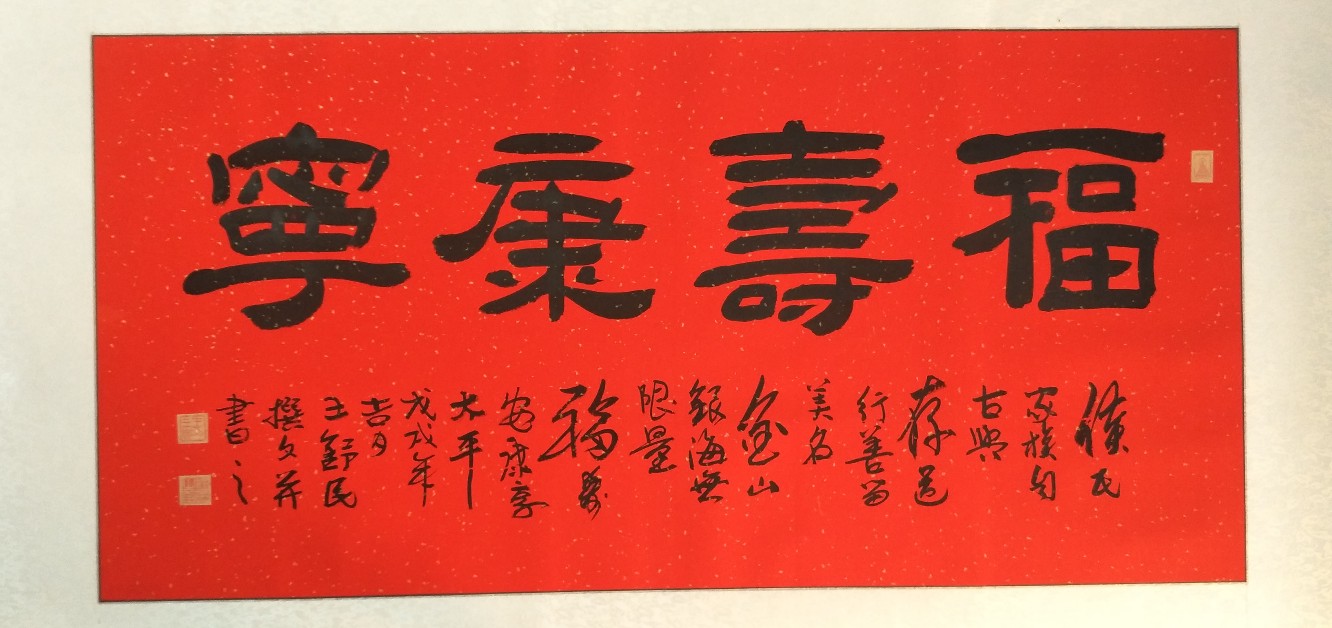 福壽康寧
民
家族自
古興
存道
行善留
美名
金山
銀海無
限量
福壽
安康享
太平
戊戌年
吉月
王舒民
撰文并
書之